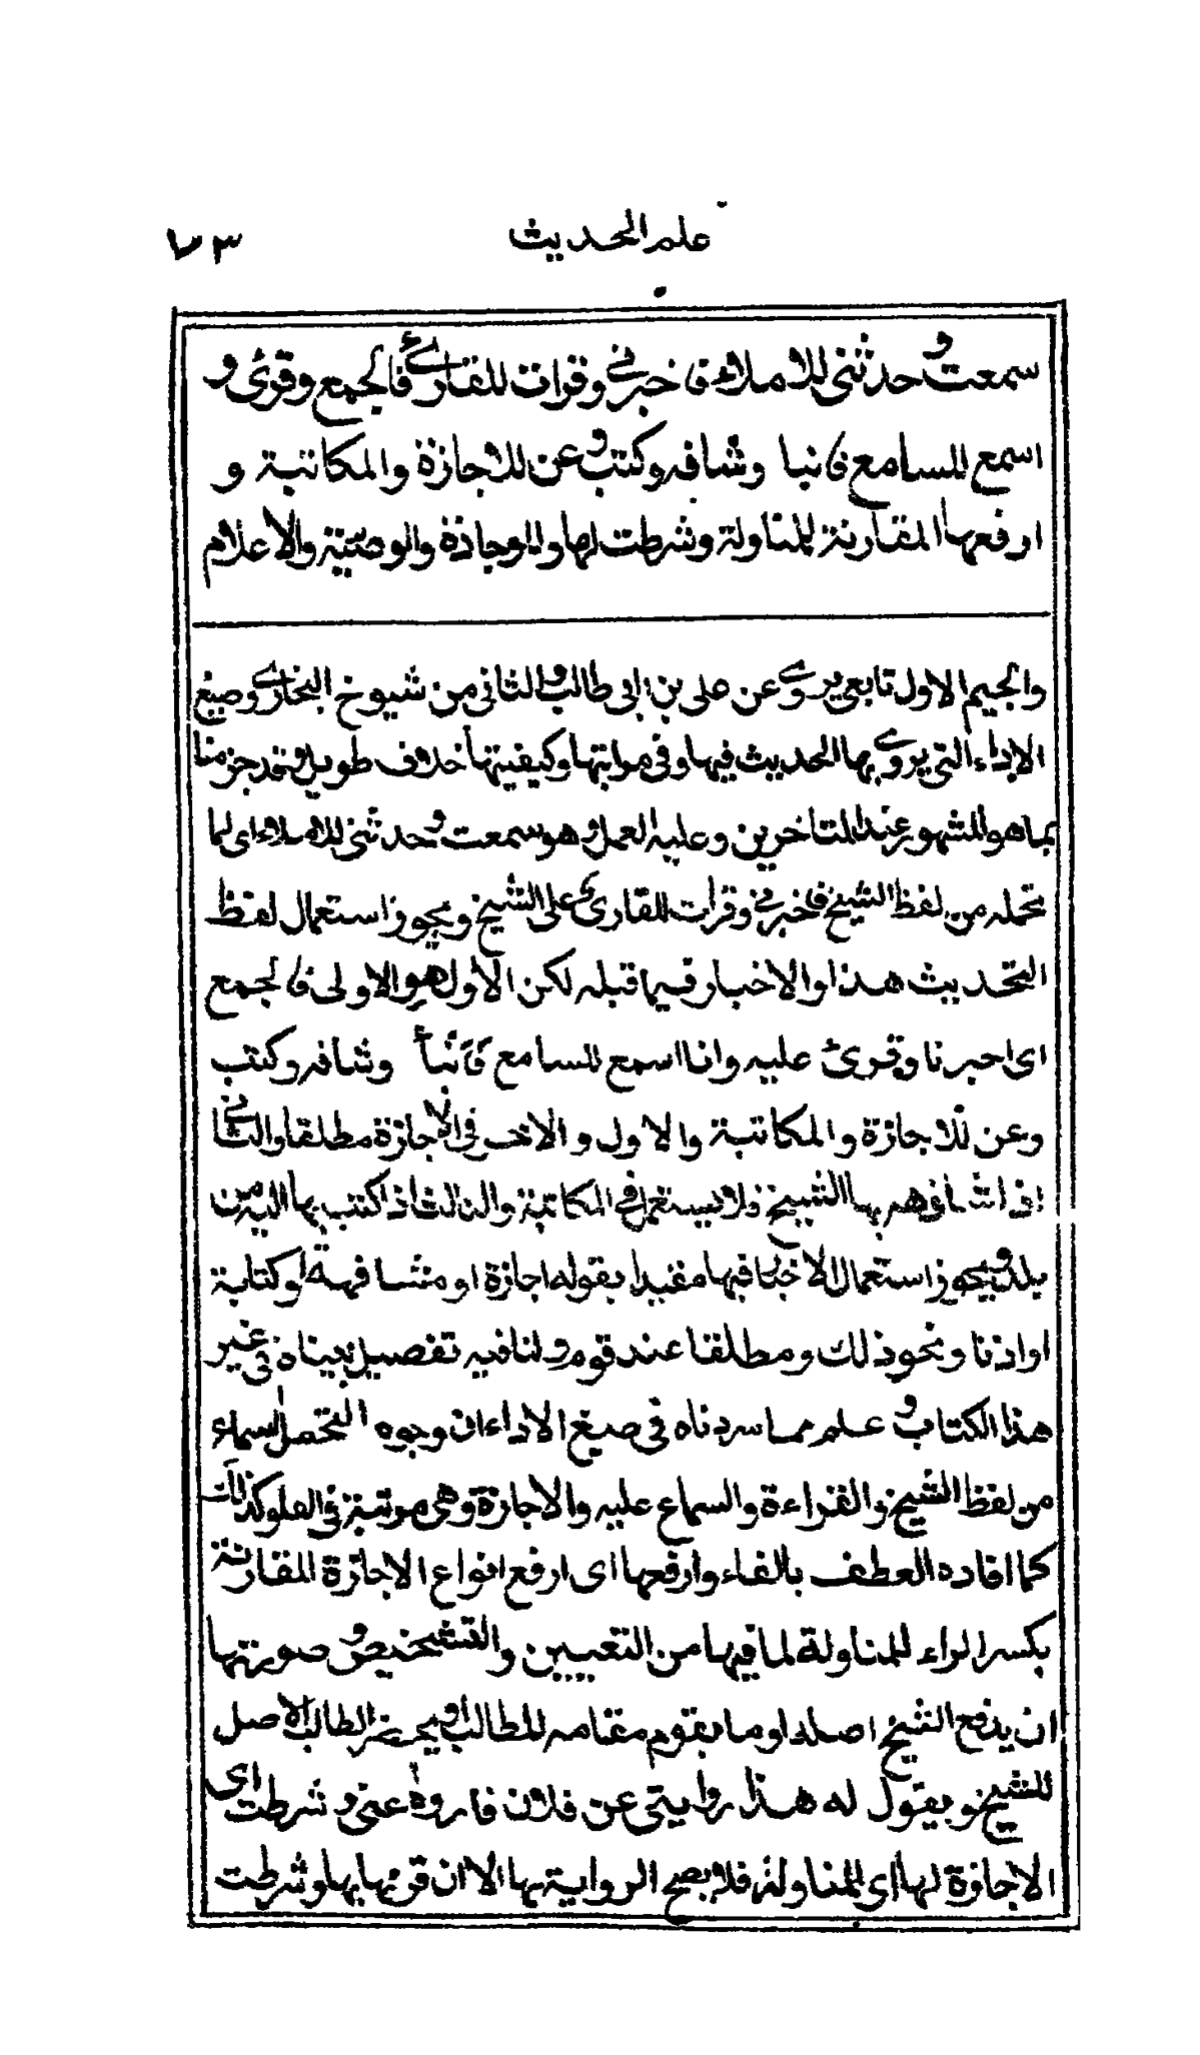 علم الحديث ٧٣
سمعت وحدثنى للاملاء فاخبرنى وقرات للقارئ فالجمع وقرئ و
اسمع للسامع فانبا وشافه وكتب وعن للاجازة والمكاتبة و
ارفعها المقارنة للمناولة وشرطت لها وللوجادة والوصية والاعلام
والجيم الاول تابعى يروى عن على بن ابى طالب والثانى من شيوخ البخارى وصيغ
الاداء التى يروى بها الحديث فيها وفى مراتبها وكيفيتها خلاف طويل وقد جزمنا
بما هو المشهور عند المتاخرين وعليه العمل وهو سمعت وحدثنى للاملاء اى لما
تحمله من لفظ الشيخ فاخبرنى وقرات للقارئ على الشيخ ويجوز استعمال لفظ
التحديث هذا والاخبار فيما قبله لكن الأول هو الاولى فالجمع
اى اخبرنا وقرئ عليه وانا اسمع للسامع فَاَنْبَأ وشافه وكتب
وعن للاجازة والمكاتبة والاول والاخر فى الاجازة مطلقا والثانى
اذا شافهه بها الشيخ فلا يستعمل فى المكاتبة والثالث اذا كتب بها اليه من
بلد ويجوز استعمال الاخبار فيها مقيدا بقوله اجازة او مشافهة او كتابة
او اذنا ونحو ذلك ومطلقا عند قوم ولنا فيه تفصيل بيناه فى غير
هذا الكتاب وعلم مما سردناه فى صيغ الاداء ان وجوه التحمل السماع
من لفظ الشيخ والقراءة والسماع عليه والاجازة وهى مرتبة فى العلو كذلك
كما افاده العطف بالفاء وارفعها اى ارفع انواع الاجازة المقارنة
بكسر الراء للمناولة لما فيها من التعيين والتشخيص وصورتها
ان يدفع الشيخ اصله او ما يقوم مقامه للطالب او يحضر الطالب الاصل
للشيخ ويقول له هذا روايتى عن فلان فاروه عنى وشرطت اى
الاجازة لها اى المناولة فلا يصح الرواية بها الا ان قرنها بها وشرطت